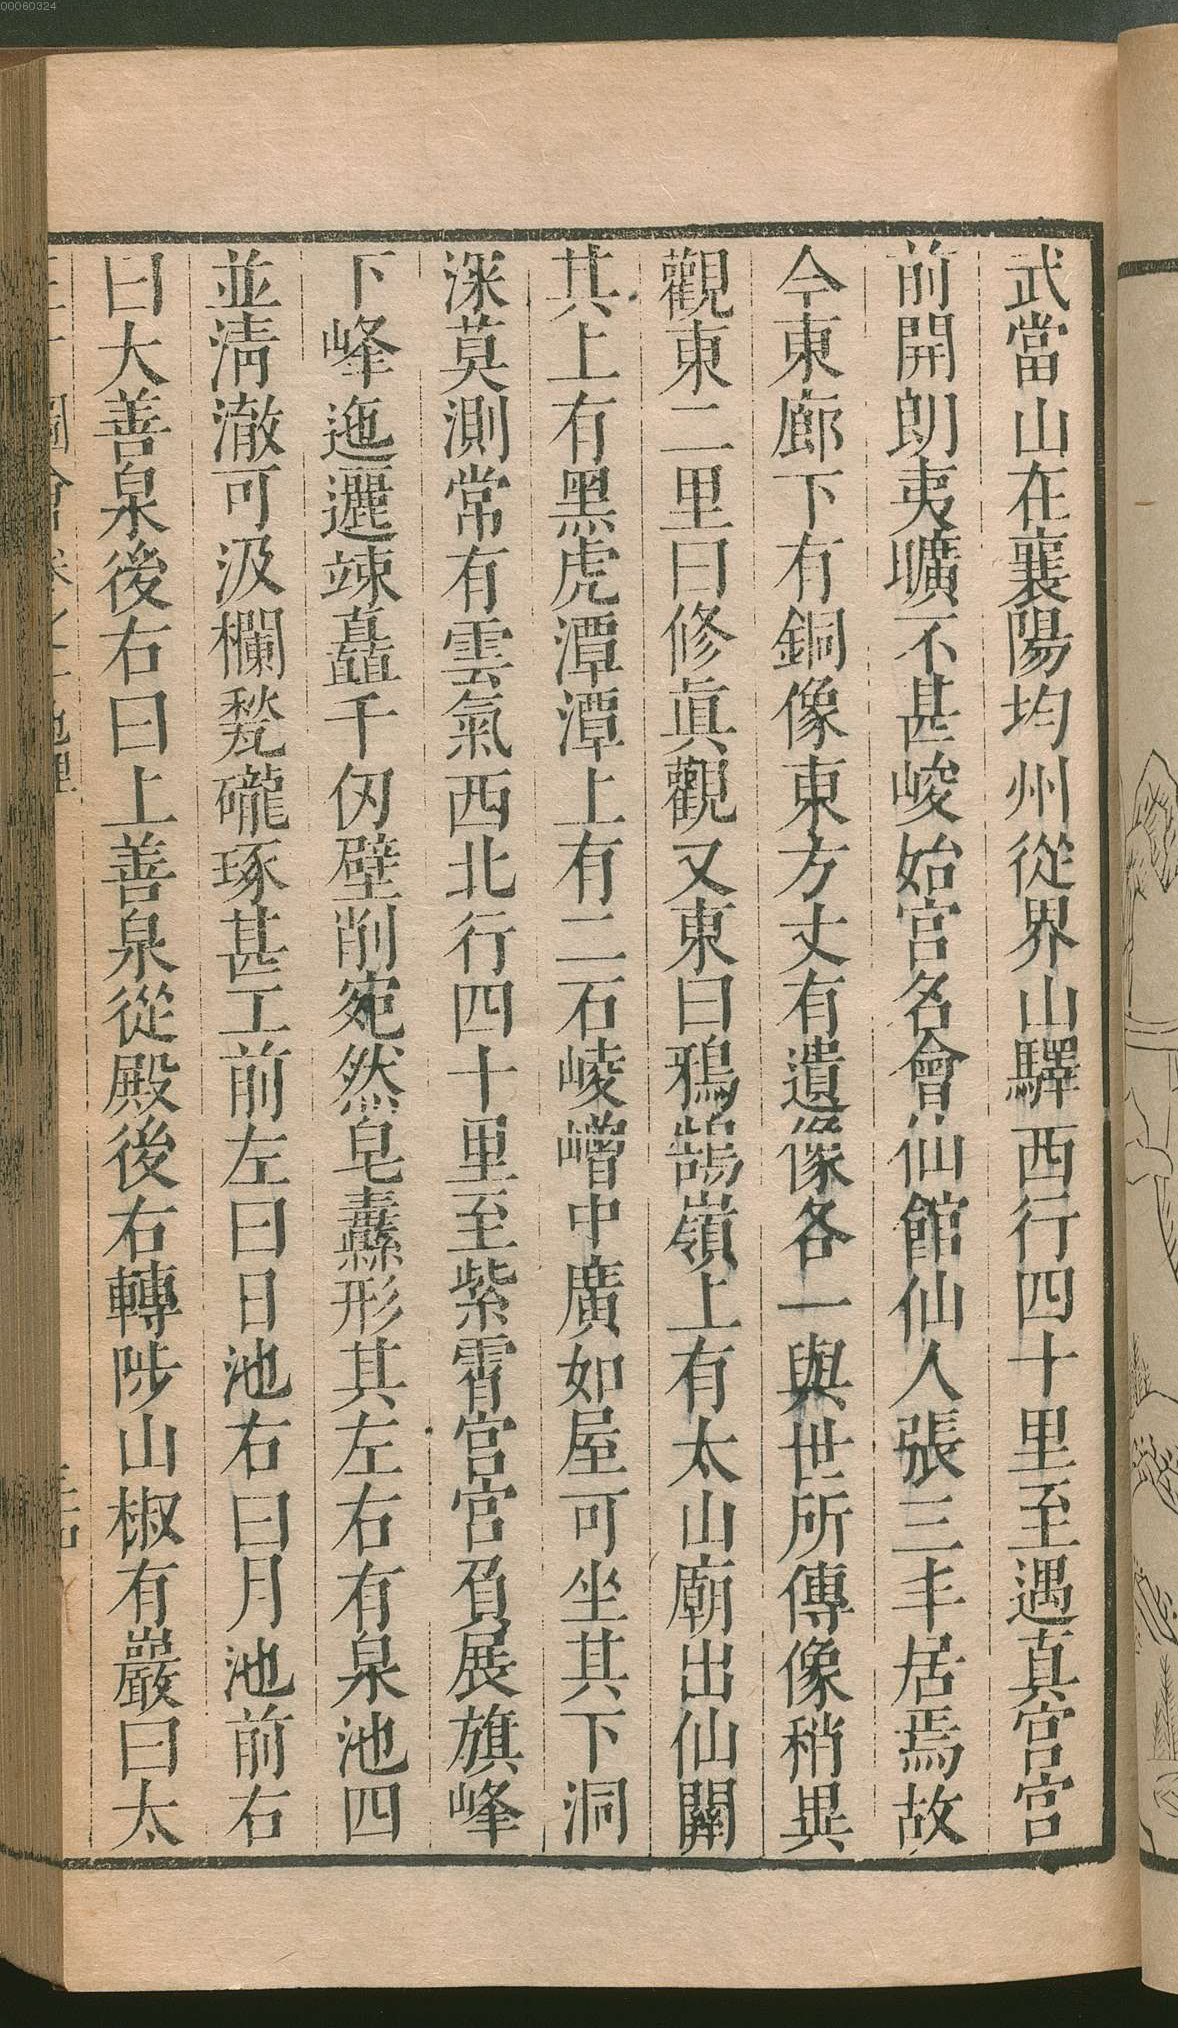 00060324
武當山在襄陽均州從界山驛西行四十里至遇真宮宮
前開朗夷曠不甚峻始宮名會仙館仙人張三丰居焉故
今東廊下有銅像東方丈有遺像各一與世所傳像稍異
觀東二里曰修眞觀又東曰鴉鵠嶺上有太山廟出仙關
其上有黑虎潭潭上有二石崚嶒中廣如屋可坐其下洞
深莫測常有雲氣西北行四十里至紫霄宮宮負展旗峰
下峰迤邐竦矗千仞壁削宛然皂纛形其左右有泉池四
並淸澈可汲欄甃礲琢甚工前左曰日池右曰月池前右
曰大善泉後右曰上善泉從殿後右轉陟山椒有巖曰太
圖會